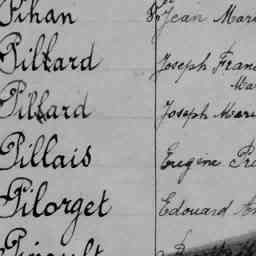 Pihan Jean Mari
Pillard Joseph Fran
Pillard Joseph Mari
Pillais Eugène
Pilorget Edouard